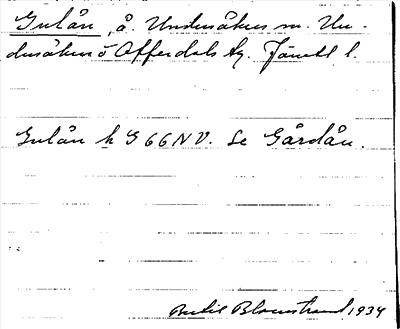 Gulån, å. Undersåkers sn. Un-
dersåkers o Offerdals tg. Jämtl l.
Gulån k G 66 NV. Se Gårdån.
Bertil Blomstrand 1934